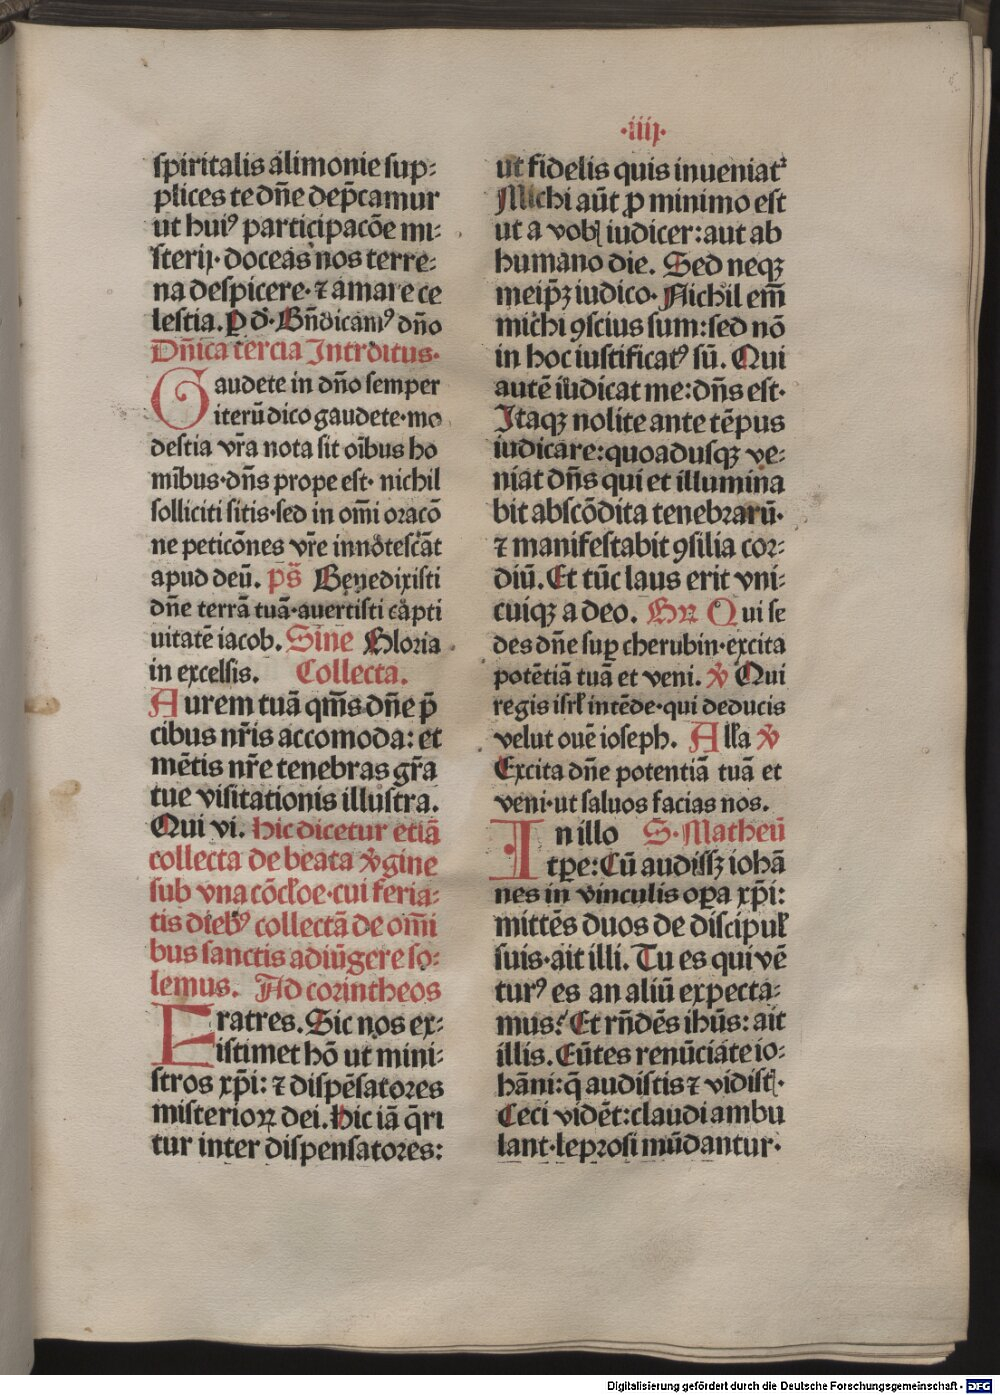 ·iiij·
spiritalis alimonie sup⸗
plices te dn̄e dep̄camur
ut huiꝰ participacōe mi⸗
sterij· doceas nos terre⸗
na despicere· ⁊ amare ce
lestia. P̱ d̄· Bn̄dicamꝰ dn̄o
Dn̄ica tercia Introitus·
Gaudete in dn̄o semper
iterū dico gaudete· mo
destia vr̄a nota sit oībus ho
mībus· dn̄s prope est· nichil
solliciti sitis· sed in om̄i oracō
ne peticōnes vr̄e innotescāt
apud deū. ps̄ Benedixisti
dn̄e terrā tuā· avertisti capti
uitatē iacob. Sine Gloria
in excelsis. Collecta.
Aurem tuā qm̄s dn̄e p̄
cibus nr̄is accomoda: et
mētis nr̄e tenebras gr̄a
tue visitationis illustra.
Qui vi. hic dicetur etiā
collecta de beata v̄gine
sub vna cōcloe· cui feria⸗
tis diebꝰ collectā de om̄i
bus sanctis adiūgere so⸗
lemus. Ad corintheos
Fratres. Sic nos ex⸗
istimet hō ut mini⸗
stros xp̄i: ⁊ dispēsatores
misterioꝝ dei. Hic iā q̄ri
tur inter dispensatores:
ut fidelis quis inueniat᷑
Michi aūt ꝓ minimo est
ut a vob̄ iudicer: aut ab
humano die. Sed neqꝫ
meip̄ꝫ iudico· Nichil em̄
michi ꝯscius sum: sed nō
in hoc iustificatꝰ sū. Qui
autē iudicat me: dn̄s est·
Itaqꝫ nolite ante tēpus
iudicare: quoadusqꝫ ve⸗
niat dn̄s qui et illumina
bit abscōdita tenebrarū·
⁊ manifestabit ꝯsilia cor⸗
diū. Et tūc laus erit vni⸗
cuiqꝫ a deo. Gr̄ Qui se
des dn̄e suꝑ cherubin· excita
potētiā tuā et veni. v̄ Qui
regis isrł intēde· qui deducis
velut ouē ioseph. Alła v̄
Excita dn̄e potentiā tuā et
veni· ut saluos facias nos.
In illo S· Matheū
tꝑe: Cū audissꝫ iohā
nes in vinculis oꝑa xp̄i:
mittēs duos de discipuł
suis· ait illi. Tu es qui vē
turꝰ es an aliū expecta⸗
mus? Et rn̄dēs ihūs: ait
illis. Eūtes renūciate io⸗
hāni: q̄ audistis ⁊ vidist̄·
Ceci vidēt: claudi ambu
lant· leprosi mūdantur·
Digitalisierung gefördert durch die Deutsche Forschungsgemeinschaft - DFG